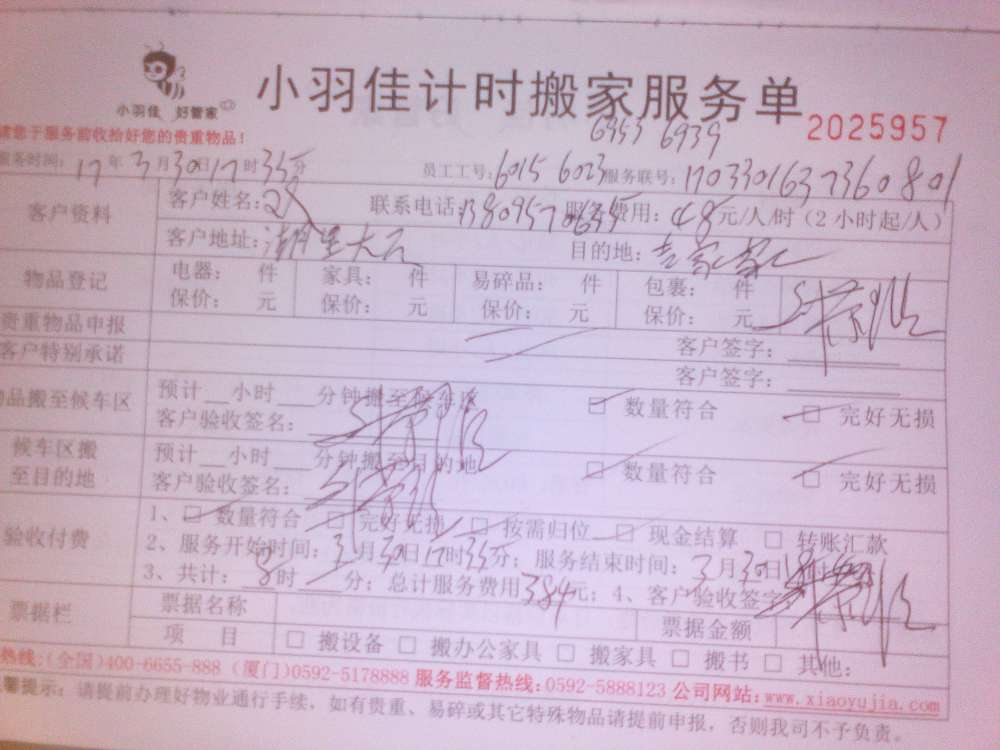 小羽佳 好管家
小羽佳计时搬家服务单
2025957
请您于服务前收拾好您的贵重物品!
6953 6939
服务时间: 17年3月30日17时35分 员工工号: 6015 6023 服务联号: 1703301637360801
客户资料 客户姓名: 联系电话: 服务费用: 48元/人/时(2小时起/人)
客户地址: 目的地:
物品登记 电器: 件 家具: 件 易碎品: 件 包裹: 件
保价: 元 保价: 元 保价: 元 保价: 元
贵重物品申报 客户签字:
客户特别承诺 客户签字:
物品搬至候车区 预计__小时___分钟搬至候车区 □ 数量符合 □ 完好无损
客户验收签名:
候车区搬至目的地 预计__小时___分钟搬至目的地 □ 数量符合 □ 完好无损
客户验收签名:
验收付费 1、□ 数量符合 □ 完好无损 □ 按需归位 □ 现金结算 □ 转账汇款
2、服务开始时间: 3月30日17时35分; 服务结束时间: 3月30日
3、共计: 8时 分; 总计服务费用384元; 4、客户验收签字
票据栏 票据名称 票据金额
项 目 □ 搬设备 □ 搬办公家具 □ 搬家具 □ 搬书 □ 其他:
热线:(全国)400-6655-888 (厦门)0592-5178888 服务监督热线:0592-5888123 公司网站:www.xiaoyujia.com
温馨提示: 请提前办理好物业通行手续, 如有贵重、易碎或其它特殊物品请提前申报, 否则我司不予负责。